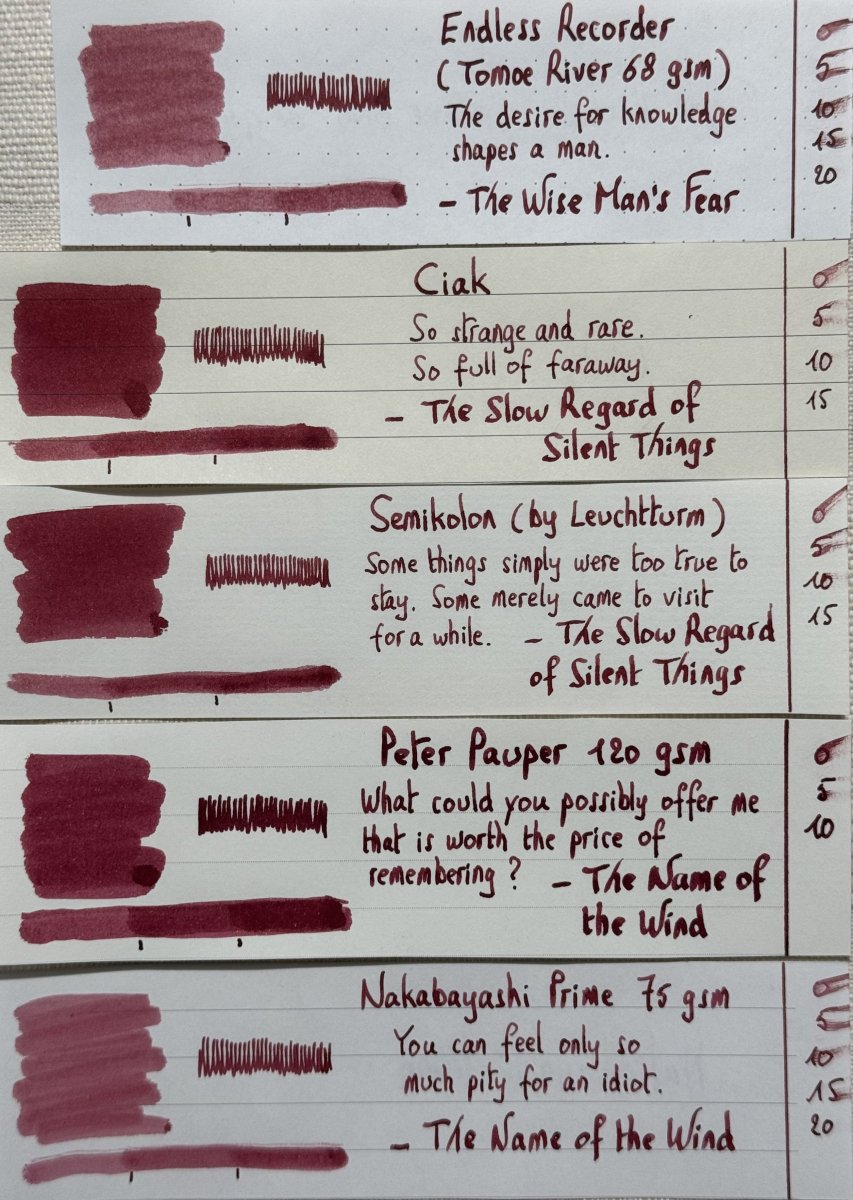 Endless Recorder
(Tomoe River 68 gsm)
The desire for knowledge
shapes a man.
- The Wise Man's Fear
0
5
10
15
20
Ciak
So strange and rare.
So full of faraway.
- The Slow Regard of
Silent Things
0
5
10
15
Semikolon (by Leuchtturm)
Some things simply were too true to
stay. Some merely came to visit
for a while. - The Slow Regard
of Silent Things
0
5
10
15
Peter Pauper 120 gsm
What could you possibly offer me
that is worth the price of
remembering? - The Name of
the Wind
0
5
10
Nakabayashi Prime 75 gsm
You can feel only so
much pity for an idiot.
- The Name of the Wind
0
5
10
15
20